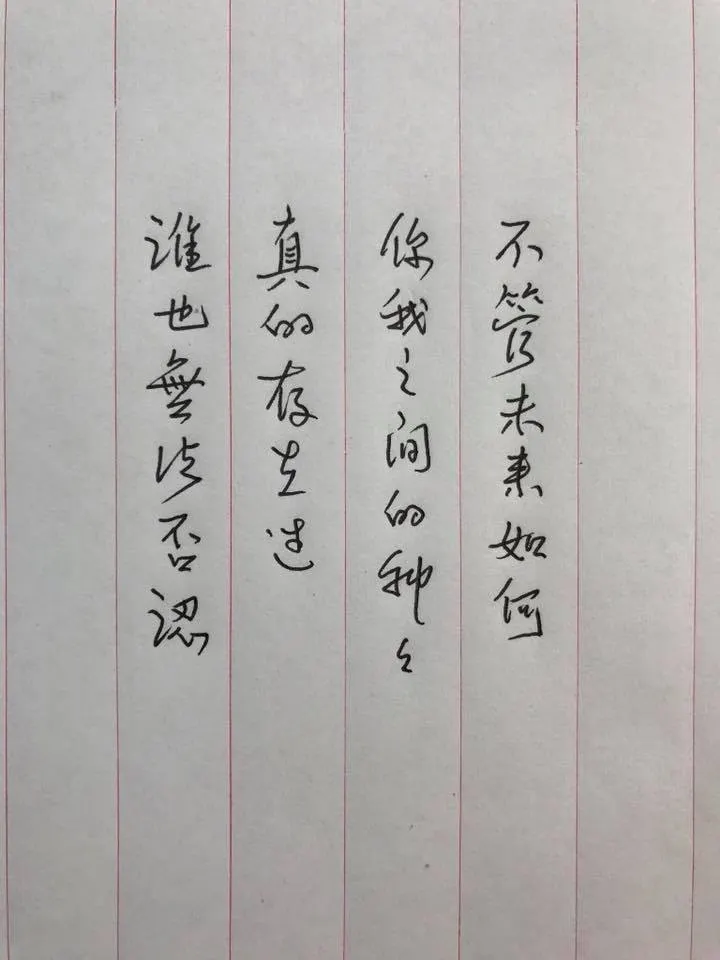 不管未来如何
你我之间的种々
真的存在过
谁也無法否認